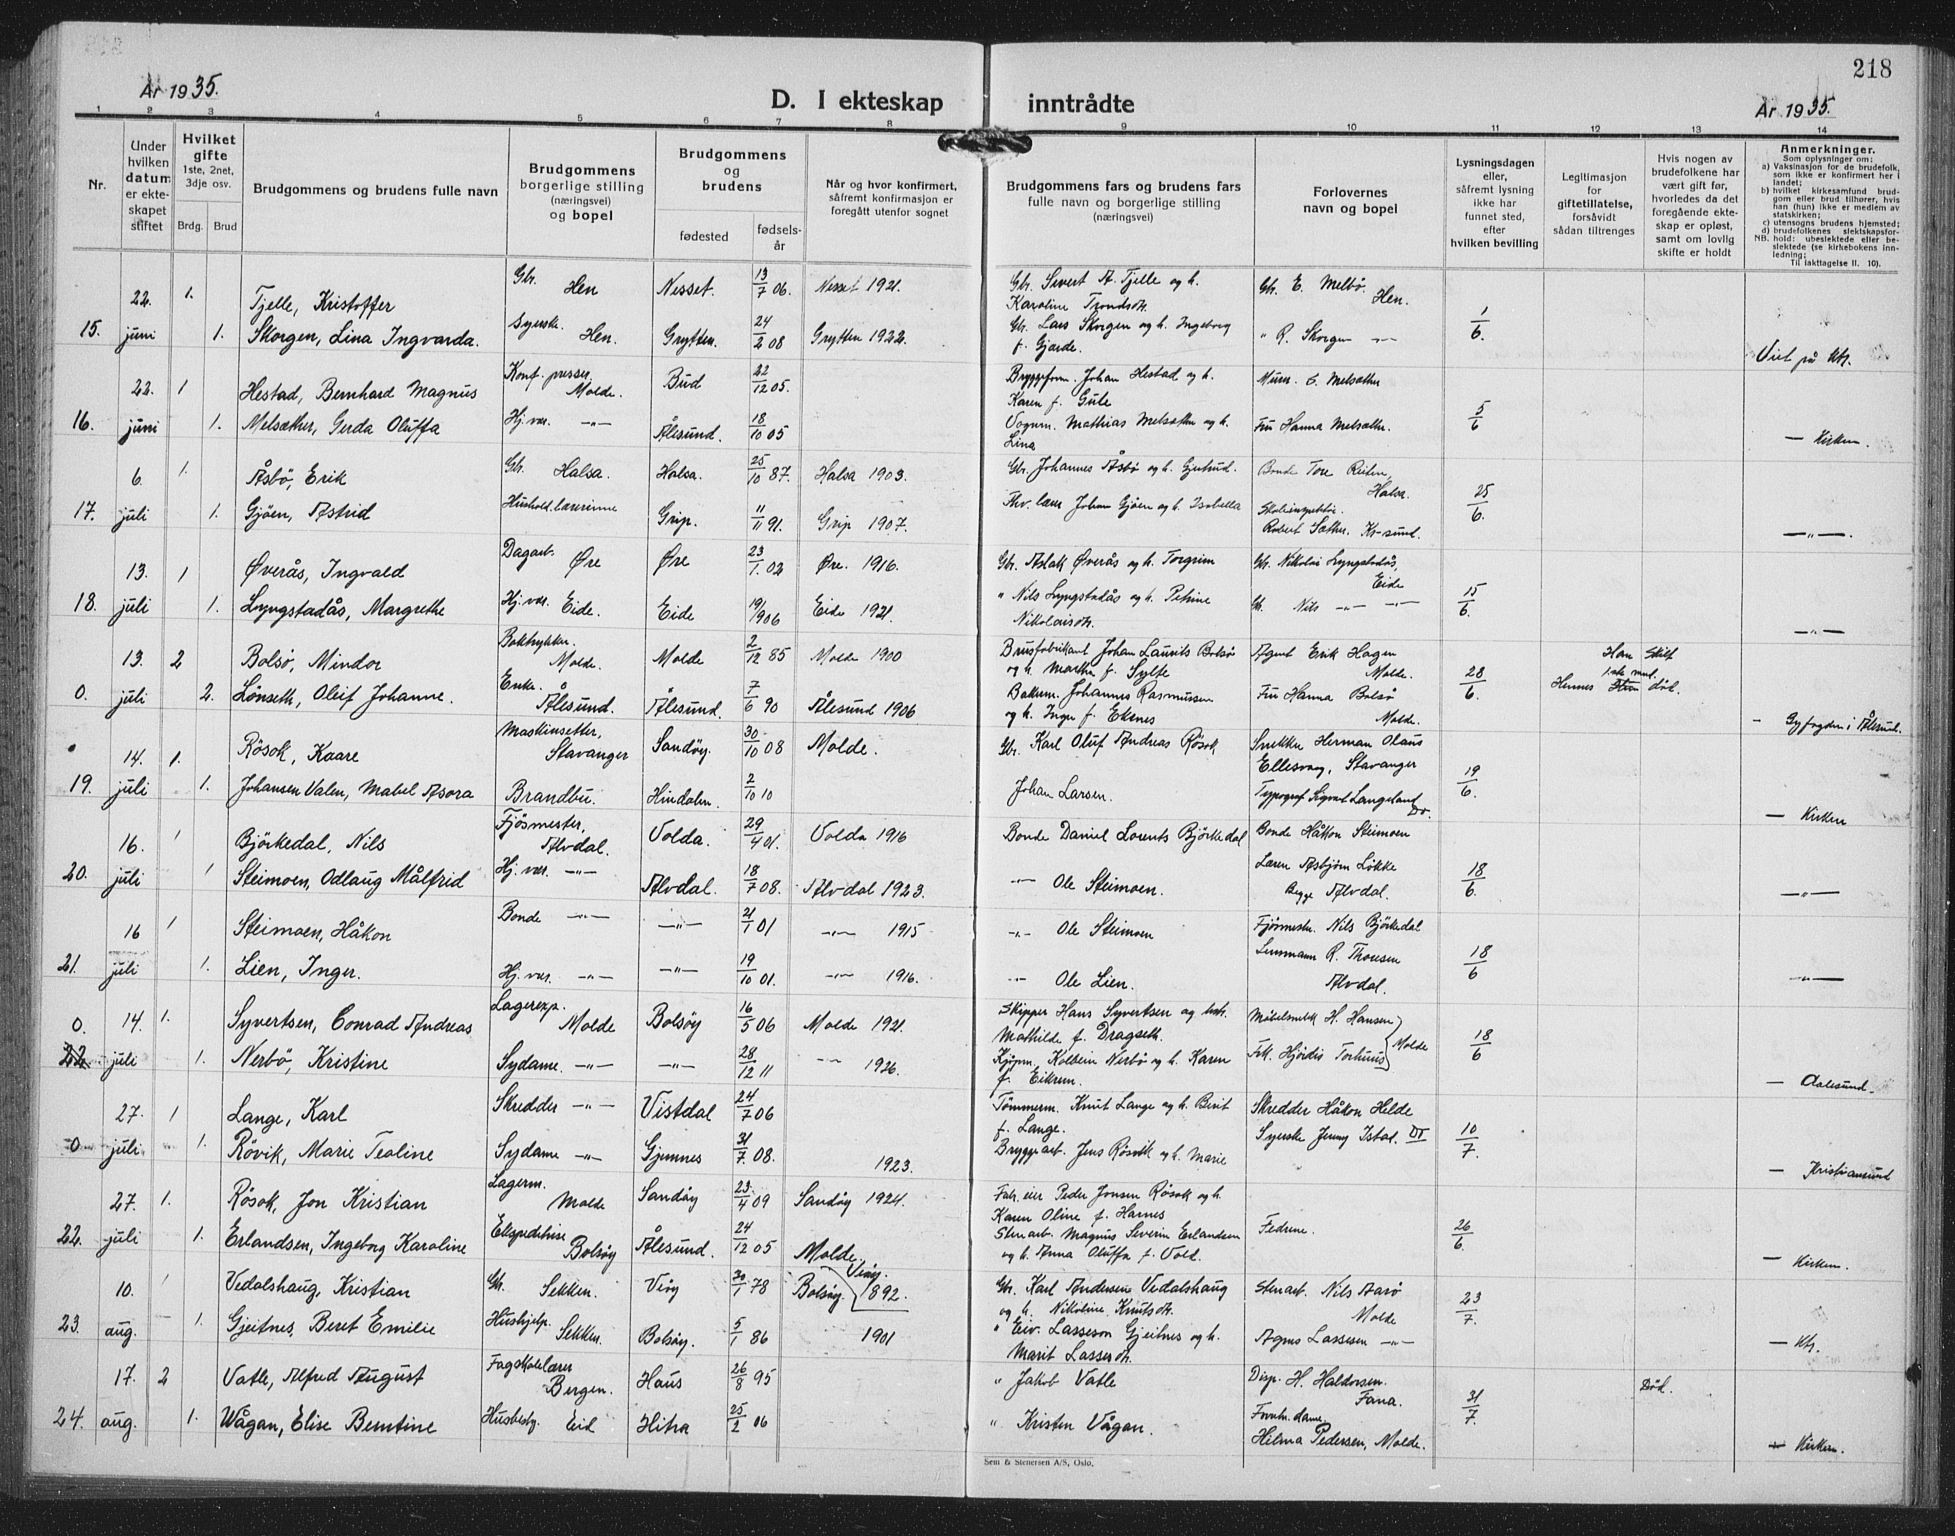 218
År 1935.
D. I ekteskap inntrådte
År 1935.
1 2 3 4 5 6 7 8 9 10 11 12 13 14
Nr.
Under hvilken datum er ekteskapet stiftet
Hvilket gifte 1ste, 2net, 3dje osv.
Brdg. Brud
Brudgommens og brudens fulle navn
Brudgommens borgerlige stilling (næringsvei) og bopel
Brudgommens og brudens
fødested
fødselsår
Når og hvor konfirmert, såfremt konfirmasjon er foregått utenfor sognet
Brudgommens fars og brudens fars fulle navn og borgerlige stilling (næringsvei)
Forlovernes navn og bopel
Lysningsdagen eller, såfremt lysning ikke har funnet sted, efter hvilken bevilling
Legitimasjon for giftetillatelse, forsåvidt sådan tiltrenges
Hvis nogen av brudefolkene har vært gift før, hvorledes da det foregående ekteskap er opløst, samt om lovlig skifte er holdt
Anmerkninger.
Som oplysninger om:
a) Vaksinasjon for de brudefolk, som ikke er konfirmert her i landet;
b) hvilket kirkesamfund brudgom eller brud tilhører, hvis han (hun) ikke er medlem av statskirken;
c) utensogns brudens hjemsted;
d) brudefolkenes slektskapsforhold: ubeslektede eller beslektede (se kirkebokens innledning;
NB.
Til iakttagelse II. 10).
22. 1. Tjelle, Kristoffer Gbr. Hen Nesset. 13/7 06. Nesset 1921. Gbr. Sivert A. Tjelle og h. Karoline Trondsdtr. Gbr. E. Melbø. Hen.
15. juni 1. Skorgen, Lina Ingvarda. Syerske. Hen. Grytten. 24/2 08 Grytten 1922. Gbr. Lars Skorgen og h. Ingeborg f. Gjerde. " R. Skorgen -"- 1/6. Viet på ktr.
22. 1 Hestad, Bernhard Magnus Konf. presser Molde. Bud 22/12 05. Bryggeform. Johan Hestad og h. Karen f. Gule Murer. E. Melsæther
16. juni 1. Melsæther, Gerda Oluffa Hj. vær. -"- Ålesund. 18/10 05 Vognm. Mathias Melsæther og h. Lina Fru Hanna Melsæther. 5/6 — Kirken.
6. 1. Åsbø, Erik Gbr. Halsa. Halsa. 25/10 87. Halsa 1903. Gbr. Johannes Åsbø og h. Gjertrud. Bonde Tore Reiten, Halsa.
17. juli 1. Gjøen, Astrid Hushold.lærerinne Grip. 11/11 91. Grip 1907. Fhv. lærer Johan Gjøen og h. Isabella Skoleinspektør. Robert Sæther. Kr-sund. 25/6. —"—.
13. 1 Øverås, Ingvald Dagarb. Øre Øre 23/1. 02 Øre. 1916. Gbr. Aslak Øverås og h. Torgrim Gbr. Nikolai Lyngstadås, Eide
18. juli 1. Lyngstadås, Margrethe Hj. vær. Eide. Eide 19/9 06 Eide 1921. " Nils Lyngstadås og h. Petrine Nikolaisdtr. Gbr. Nils -"- -"- 15/6. —"—
13. 2 Bolsø, Mindor Boktrykker. Molde. Molde 2/12 85 Molde 1900 Brusfabrikant Johan Laurits Bolsø og h. Marthe f. Sylte Agent Erik Hagen Molde. Han Skilt
0. juli 2. Lønseth, Oleif Johanne. Enke. Ålesund. Ålesund. 7/6 90 Ålesund 1906 Bakem. Johannes Rasmussen og h. Inger f. Eknes Fru Hanna Bolsø Molde. 28/6. Hennes 1ste mut. død. — Byfogden i Ålesund.
14. 1. Røsok, Kaare Maskinsetter, Stavanger Sandøy. 30/10 08 Molde. Gbr. Karl Oluf Andreas Røsok Snekker Herman Olaus Ellesvag, Stavanger
19. juli 1. Johansen Valen, Mabel Asora Brandbu. Hindalen. 2/10 10 Johan Larsen. Typograf Sigvat Langeland Do. 19/6. — Kirken
16. 1 Bjørkedal, Nils Fjøsmester, Alvdal. Volda. 29/4 01. Volda 1916 Bonde Daniel Lorents Bjørkedal Bonde Håkon Steimoen
20. juli 1 Steimoen, Odlaug Målfrid Hj. vær. -"- Alvdal. 18/7 08. Alvdal 1923. -"- Ole Steimoen. Lærer Asbjørn Løkke Begge Alvdal. 18/6. —"—
16 1 Steimoen, Håkon Bonde -"- -"- 21/1 01 -"- 1915 -"- Ole Steimoen Fjøsmestr. Nils Bjørkedal
21. juli 1. Lien, Inger. Hj. vær. -"- -"- 19/10 01. -"- 1916. -"- Ole Lien. Lensmann R. Thoresen Alvdal. 18/6 —"—
0. 14. 1. Syvertsen, Conrad Andreas Lagerexp. Molde Bolsøy 16/5 06 Molde 1921. Skipper Hans Syvertsen og hstr. Mathilde f. Dragseth. Møbelsnekk H. Hansen
22. juli 1. Nerbø, Kristine Sydame. -"- -"- 28/12 11 -"- 1926. Kjøpm. Kolbein Nerbø og h. Karen f. Eikrem. Frk. Hjørdis Torhuus Molde 18/6 — Aalesund.
27. 1 Lange, Karl Skredder -"- Vistdal 24/7 06 Tømmerm. Knut Lange og h. Berit f. Lange. Skredder Håkon Helde
0 juli 1. Røvik, Marie Tealine Sydame -"- Gjemnes 31/7. 08. 1923. Bryggearb. Jens Røsvik og h. Marie Syerske Jenny Istad. Do 10/7. — Kristiansund
27. 1. Røsok, Jon Kristian Lagerm. Molde Sandøy 23/4 09 Sandøy 1924. Fabr. eier Peder Jonsen Røsok og h. Karen Oline f. Harnes
22. juli 1. Erlandsen, Ingeborg Karoline Ekspeditrise Bolsøy Ålesund. 24/12 05 Molde. Stenarb. Magnus Severin Erlandsen og h. Anna Oluffa f. Vold. Fedrene. 26/6. — Kirken.
10. Vedalshaug, Kristian Gbr. Sekken. Veøy 30/1 78 Bolsøy. Veøy. 1892. Gbr. Karl Andersen Vedalshaug og h. Nikoline Knutsdtr. Stenarb. Nils Aarø Molde
23. aug. 1. Gjeitnes, Beret Emilie Hushjelp. Sekken. Bolsøy. 5/1 86 1901 " Eiv. Lasseson Gjeitnes og h. Marit Lasserdtr. Agnes Lassesen -"- 23/7. — Ktr.
17. 2 Vatle, Alfred August Fagskolelærer Bergen. Haus 26/8 95 " Jakob Vatle Disp. H. Haldorsen. Fana. Død.
24. aug. 1. Wågan, Elise Berntine Husbesty. Eid Hitra 25/2 06 " Kristen Vågan. Forretn. dame. Hilma Pedersen, Molde. 31/7. — Kirken.
Sem & Stenersen A/S, Oslo.